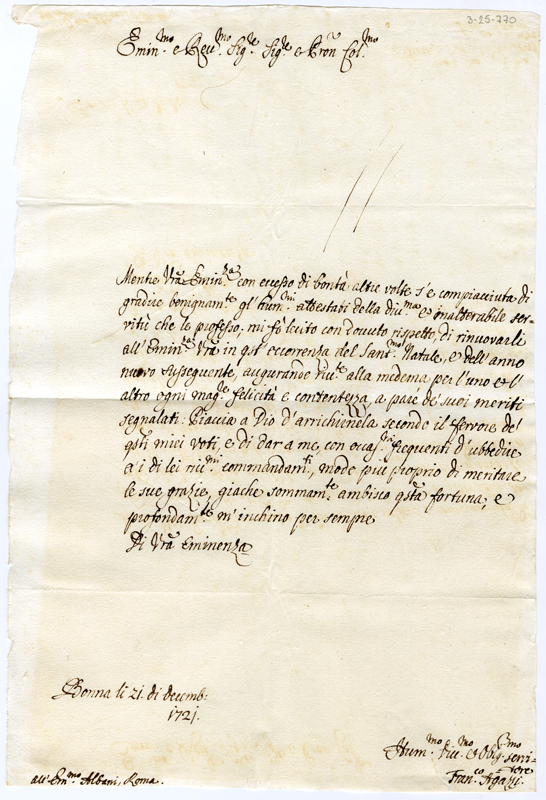 3-25-770
Emin.mo e Rev.mo Sig.re Sig.re e Pron Col.mo
Mentre Vrã Emin.za con eccesso di bontà altre volte s'è compiacciuta di
gradire benignam.te gl'hum.mi attestati della div.ma et inalterabile ser-
vitù che le professo; mi fo lecito con dovuto rispetto, di rinuovarli
all'Emin.za Vrã in qst' occorrenza del Sant.mo Natale, e dell'anno
nuovo susseguente, augurando riv.te alla medema per l'uno et l'
altro ogni mag.re felicità e contentezza, a pare de' suoi meriti
segnalati. Piaccia a Dio d'arrichirnela secondo il fervore de'
qsti miei voti, e di dar a me, con occas.ni frequenti d'ubbedire
a i di lei riv.mi commandam.ti, modo più proprio di meritare
le sue grazie, giache sommam.te ambisco qstã fortuna, e
profondam.te m'inchino per sempre
Di Vrã Eminenza
Bonna li 21. di decemb:
1721.
Hum.mo div.mo et Oblig.mo servi-
tore
Fran.co
all'Em.mo Albani, Roma.